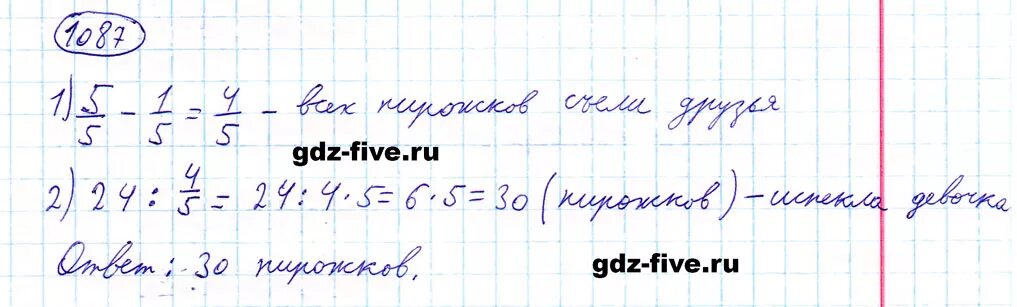 1087
1) 5/5 - 1/5 = 4/5 - всех пирожков съели друзья
gdz-five.ru
2) 24 : 4/5 = 24 : 4 · 5 = 6 · 5 = 30 (пирожков) - испекла девочка
Ответ: 30 пирожков.
gdz-five.ru